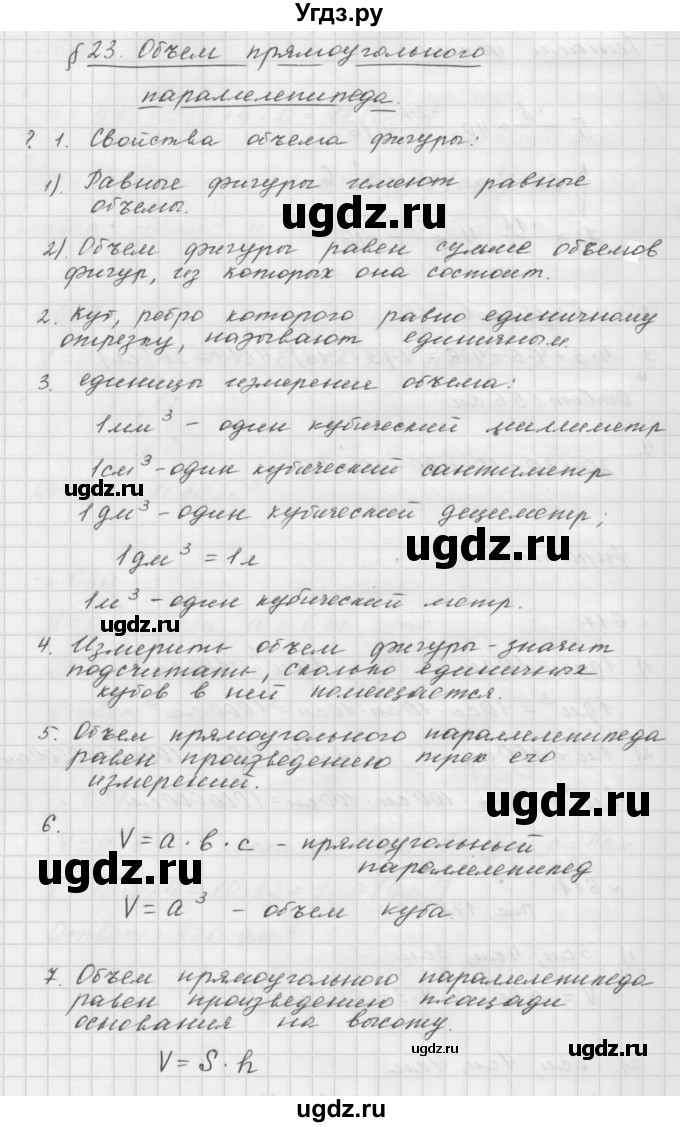 Угдз.ру
§ 23. Объем прямоугольного
параллелепипеда.
? 1. Свойства объема фигуры:
1). Равные фигуры имеют равные
объемы.
ugdz.ru
2) Объем фигуры равен сумме объемов
фигур, из которых она состоит.
2. Куб, ребро которого равно единичному
отрезку, называют единичным.
ugdz.ru
3. единицы измерения объема:
1 мм³ - один кубический миллиметр
1 см³ - один кубический сантиметр
ugdz.ru
1 дм³ - один кубический дециметр;
1 дм³ = 1 л
ugdz.ru
1 м³ - один кубический метр.
ugdz.ru
4. Измерить объем фигуры - значит
подсчитать, сколько единичных
кубов в ней помещается.
5. Объем прямоугольного параллелепипеда
равен произведению трех его
измерений.
ugdz.ru
6.
V = a · b · c - прямоугольный
параллелепипед
ugdz.ru
V = a³ - объем куба
ugdz.ru
7. Объем прямоугольного параллелепипеда
равен произведению площади
основания на высоту.
ugdz.ru
ugdz.ru
V = S · h
ugdz.ru
ugdz.ru